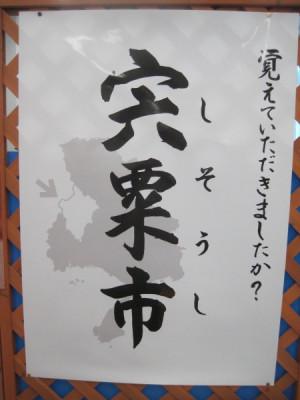 覚えていただきましたか?
しそうし
宍粟市